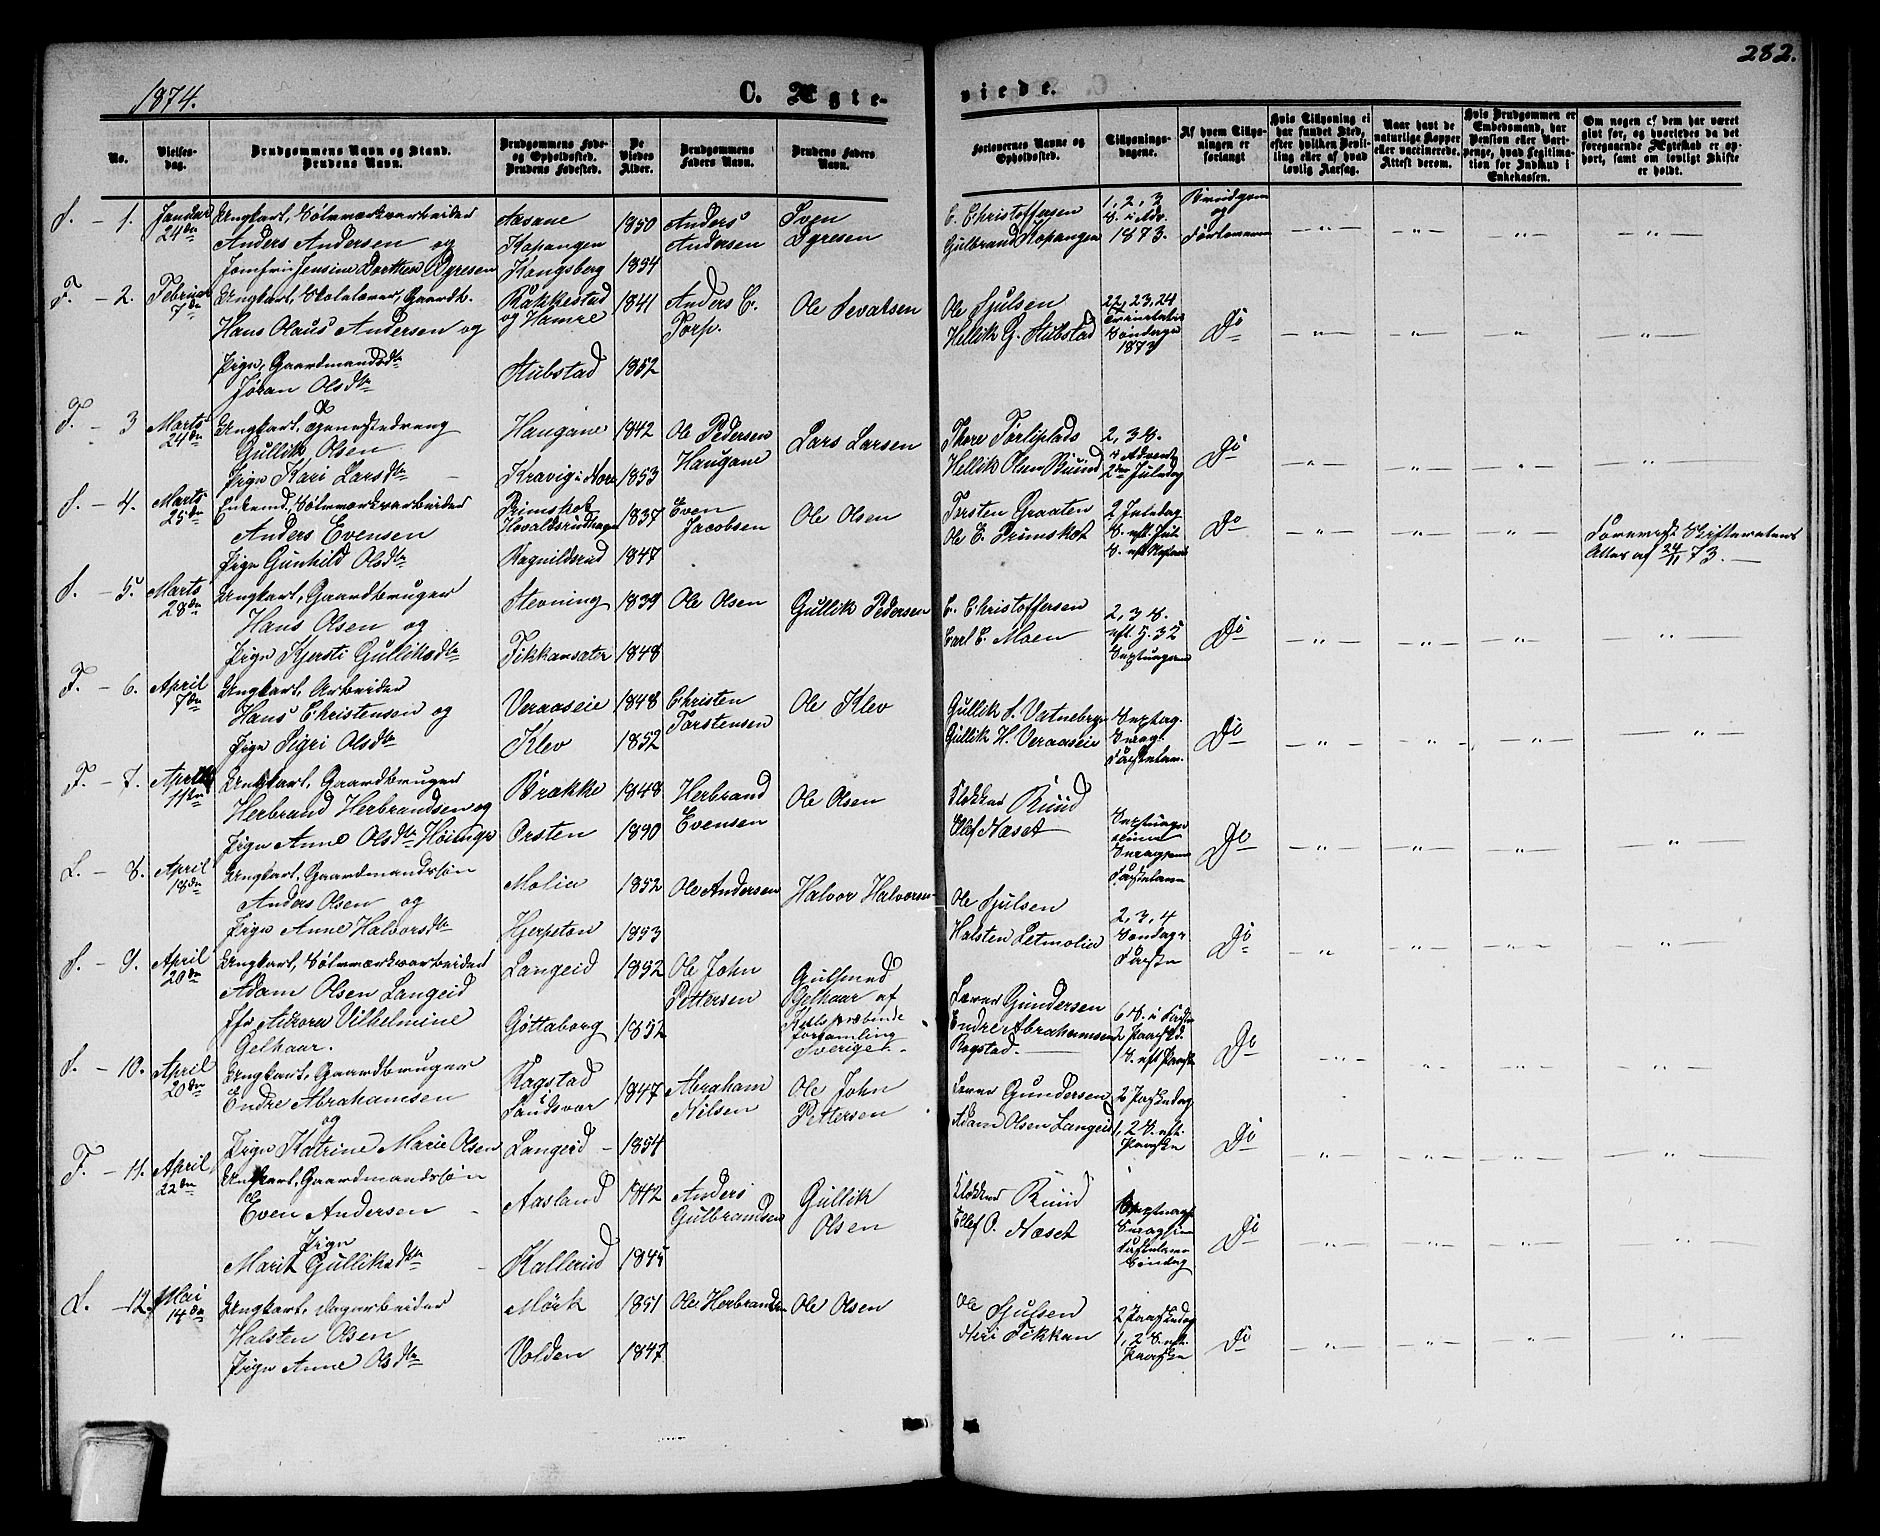 282.
1874.
C. Ægte-
viede.
No.
Vielses-
dag.
Brudgommens Navn og Stand.
Brudens Navn.
Brudgommens Føde-
og Opholdssted.
Brudens Fødested.
De
Viedes
Alder.
Brudgommens
Faders Navn.
Brudens Faders
Navn.
Forlovernes Navne og
Opholdssted.
Tillysnings-
dagene.
Af hvem Tillys-
ningen er
forlangt
Hvis Tillysning ei
har fundet Sted,
efter hvilken Bevil-
ling eller af hvad
lovlig Aarsag.
Naar havt de
naturlige Kopper
eller vaccinerede.
Attest derom.
Hvis Brudgommen er
Embedsmand, har
Pension eller Vart-
penge, hvad Legitima-
tion for Indskud i
Enkekassen.
Om nogen af dem har været
gift før, og hvorledes da det
foregaaende Ægteskab er op-
hørt, samt om lovligt Skifte
er holdt.
S. - 1. Januar 24de
Ungkarl, Sølvværksarbeider
Anders Andersen og
Jomfru Jensine Dorthea Dyresen
Aasane
Kopangen
Kongsberg
1850
1854
Anders
Andersen
Sven
Dyresen
C. Christoffersen
Gulbrand Kopangen
1, 2, 3
S. i Adv.
1873.
Brudgom
og
Forloverne
F. - 2. Februar 7de
Ungkarl, Skolelærer, Gaardb.
Hans Olaus Andersen og
Pige, Gaardmandsdtr
Jøran Olsdtr
Rakkestad
og Hamre
Stubstad
1841
1852
Anders C.
Torp.
Ole Sevatsen
Ole Sjulsen
Hellik G. Stubstad
22, 23, 24
Trinitatis
Søndage
1873
Do
F. - 3 Marts 24de
Ungkarl, Tjenestedreng
Gullik Olsen
Pige Kari Larsdtr
Haugane
Kravig i Nore
1842
1853
Ole Pedersen
Haugane
Lars Larsen
Thore Førliplads
Hellik Olsen Ruud
2, 3 S.
i Advent
2den Juledag
Do
S. - 4. Marts 25de
Enkemd, Sølvværksarbeider
Anders Evensen
Pige Gunhild Olsdtr
Primskot
Ragnildsrud
1837
1847
Even
Jacobsen
Ole Olsen
Torsten Graaten
Ole E. Primskot
2 Juledag
S. eft. Jul
S. eft. Nytaar
Do
Forevist Skifteretens
Attest af 24/11 73.
S. - 5. Marts 28de
Ungkarl, Gaardbruger
Hans Olsen og
Pige Kjersti Gulliksdtr
Stevning
Fikkansæter
1839
1848
Ole Olsen
Gullik Pedersen
C. Christoffersen
Carl C. Moen
2, 3 S.
Do
F. - 6. April 7de
Ungkarl, Arbeider
Hans Christensen og
Pige Sigri Olsdtr
Veraaseie
Klev
1848
1852
Christen
Torstensen
Ole Klev
Gullik S. Vatnebryn
Gullik H. Veraaseie
Do
F. - 7. April 11de
Ungkarl, Gaardbruger
Herbrand Herbrandsen og
Pige Anne Olsdtr
Brække
Ørsten
1848
1850
Herbrand
Evensen
Ole Olsen
Klokker Ruud
Ellef Næset
Do
L. - 8. April 18de
Ungkarl, Gaardmandssøn
Anders Olsen og
Pige Anne Halvorsdtr
Molia
Hjerpeton
1852
1853
Ole Andersen
Halvor Halvorsen
Ole Sjulsen
Halsten Letmolia
2, 3, 4
Søndag i
Faste
Do
S. - 9. April 20de
Ungkarl, Sølvværksarbeider
Adam Olsen Langeid
Jfr Aurora Vilhelmine
Gelhaar.
Langeid
Gøttaborg
1852
1852
Ole John
Pettersen
Gulsmed
Gelhaar af
forsamling
Sverige.
Lærer Gundersen
Endre Abrahamsen
Rogstad.
6 S. i Faste
2 Paaskd.
1 S. eft. Paaske
Do
S. - 10. April 20de
Ungkarl, Gaardbruger
Endre Abrahamsen
og
Pige Katrine Marie Olsen
Ragstad
Sandsvær
Langeid
1847
1854
Abraham
Nilsen
Ole John
Pettersen
Lærer Gundersen
Adam Olsen Langeid
2 Paaskedag
1, 2 S. eft.
Paaske
Do
F. - 11. April 22de
Ungkarl, Gaardmandssøn
Even Andersen
Pige
Marit Gulliksdtr
Aasland
Kallerud
1842
1845
Anders
Gulbrandsen
Gullik
Olsen
Klokker Ruud
Ellef O. Næset
Søndag
Do
L. - 12. Mai 14de
Ungkarl, Dagarbeider
Halsten Olsen
Pige Anne Olsdtr
Mörk
Volden
1851
1847
Ole Herbrandsen
Ole Olsen
Ole Sjulsen
Neri Fikkan
2 Paaskedag
1, 2 S. eft.
Paaske
Do